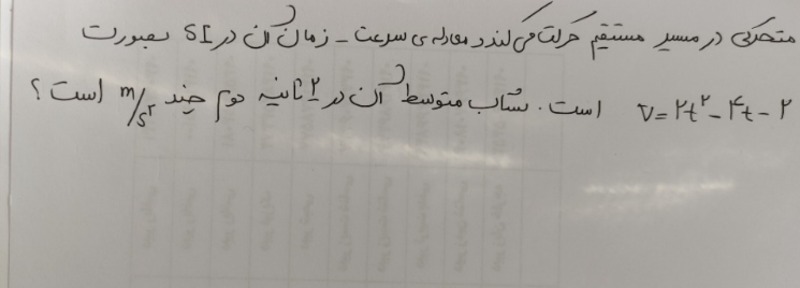 متحرکی در مسیر مستقیم حرکت می کند و معادله ی سرعت - زمان آن در SI بصورت
V = ۲t² - ۴t - ۲ است. شتاب متوسط آن در ۲ ثانیه دوم چند m/s² است؟